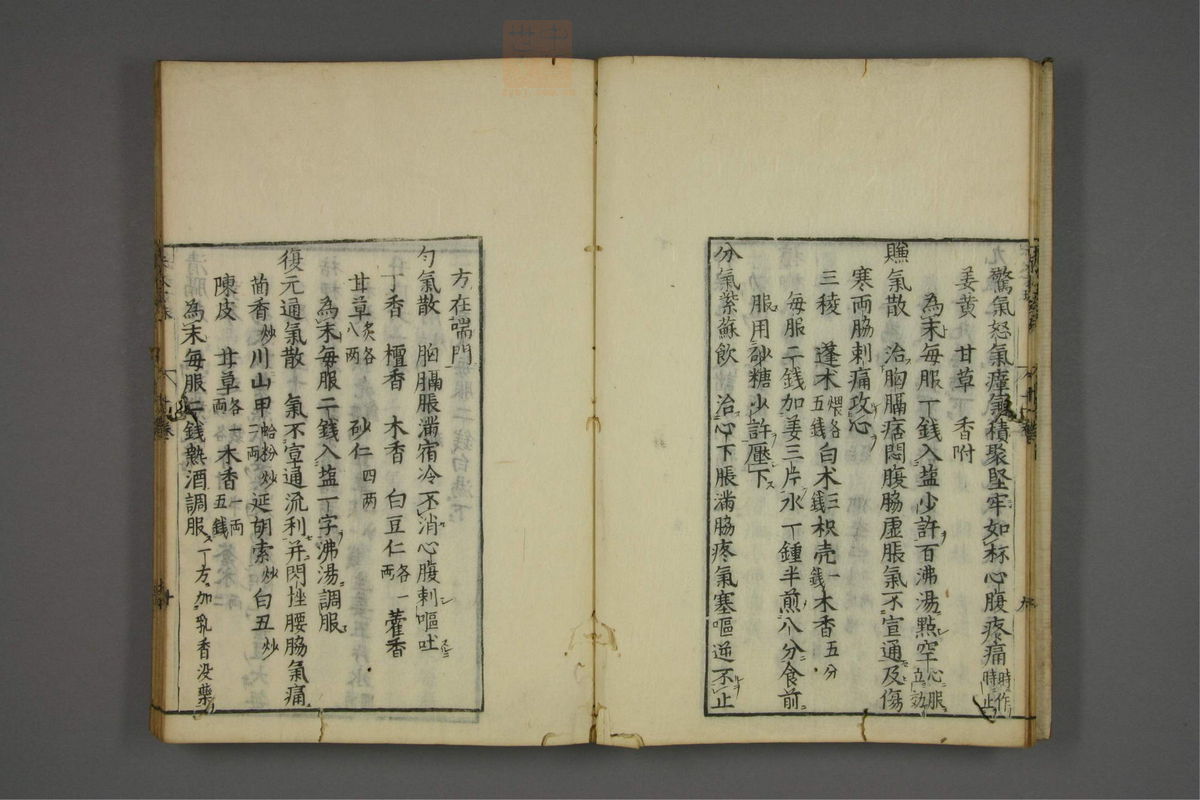 驚氣怒氣癉氣積聚堅牢如杯心腹疼痛時作時止
姜黄　甘草　香附
為末毎服一錢入塩少許百沸湯點空心服立効
氣散　治胸膈痞悶腹脇虚脹氣不宣通及傷
寒両脇刺痛攻心
三稜　蓬术煨各五銭白术三銭枳売一銭木香五分
毎服二錢加姜三片水一鍾半煎八分食前
服用砂糖少許壓下
分氣紫蘇飲　治心下脹滿脇疼氣塞嘔逆不止
方在喘門
匀氣散　胸膈脹滿宿冷不消心腹刺嘔吐
丁香　檀香　木香　白豆仁各一両　藿香
甘草炙各八両　砂仁四両
為末毎服二錢入塩一字沸湯調服
復元通氣散　氣不宣通流利并閃挫腰脇氣痛
茴香炒川山甲蛤粉炒二両延胡索炒白丑炒
陳皮　甘草各一両木香一両五銭
為末毎服二錢熱酒調服一方加乳香没藥